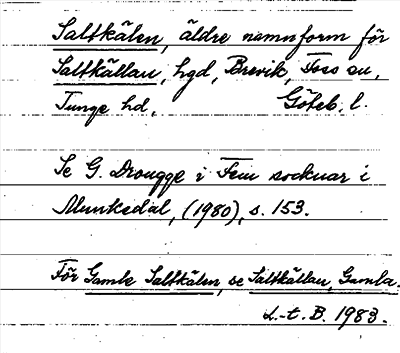 Saltkälen, äldre namnform för
Saltkällan, hgd, Brevik, Foss sn,
Tunge hd, Göteb. l.
Se G. Drougge i Fem socknar i
Munkedal, (1980), s. 153.
För Gamla Saltkälen, se Saltkällan, Gamla.
L.-t. B. 1983.